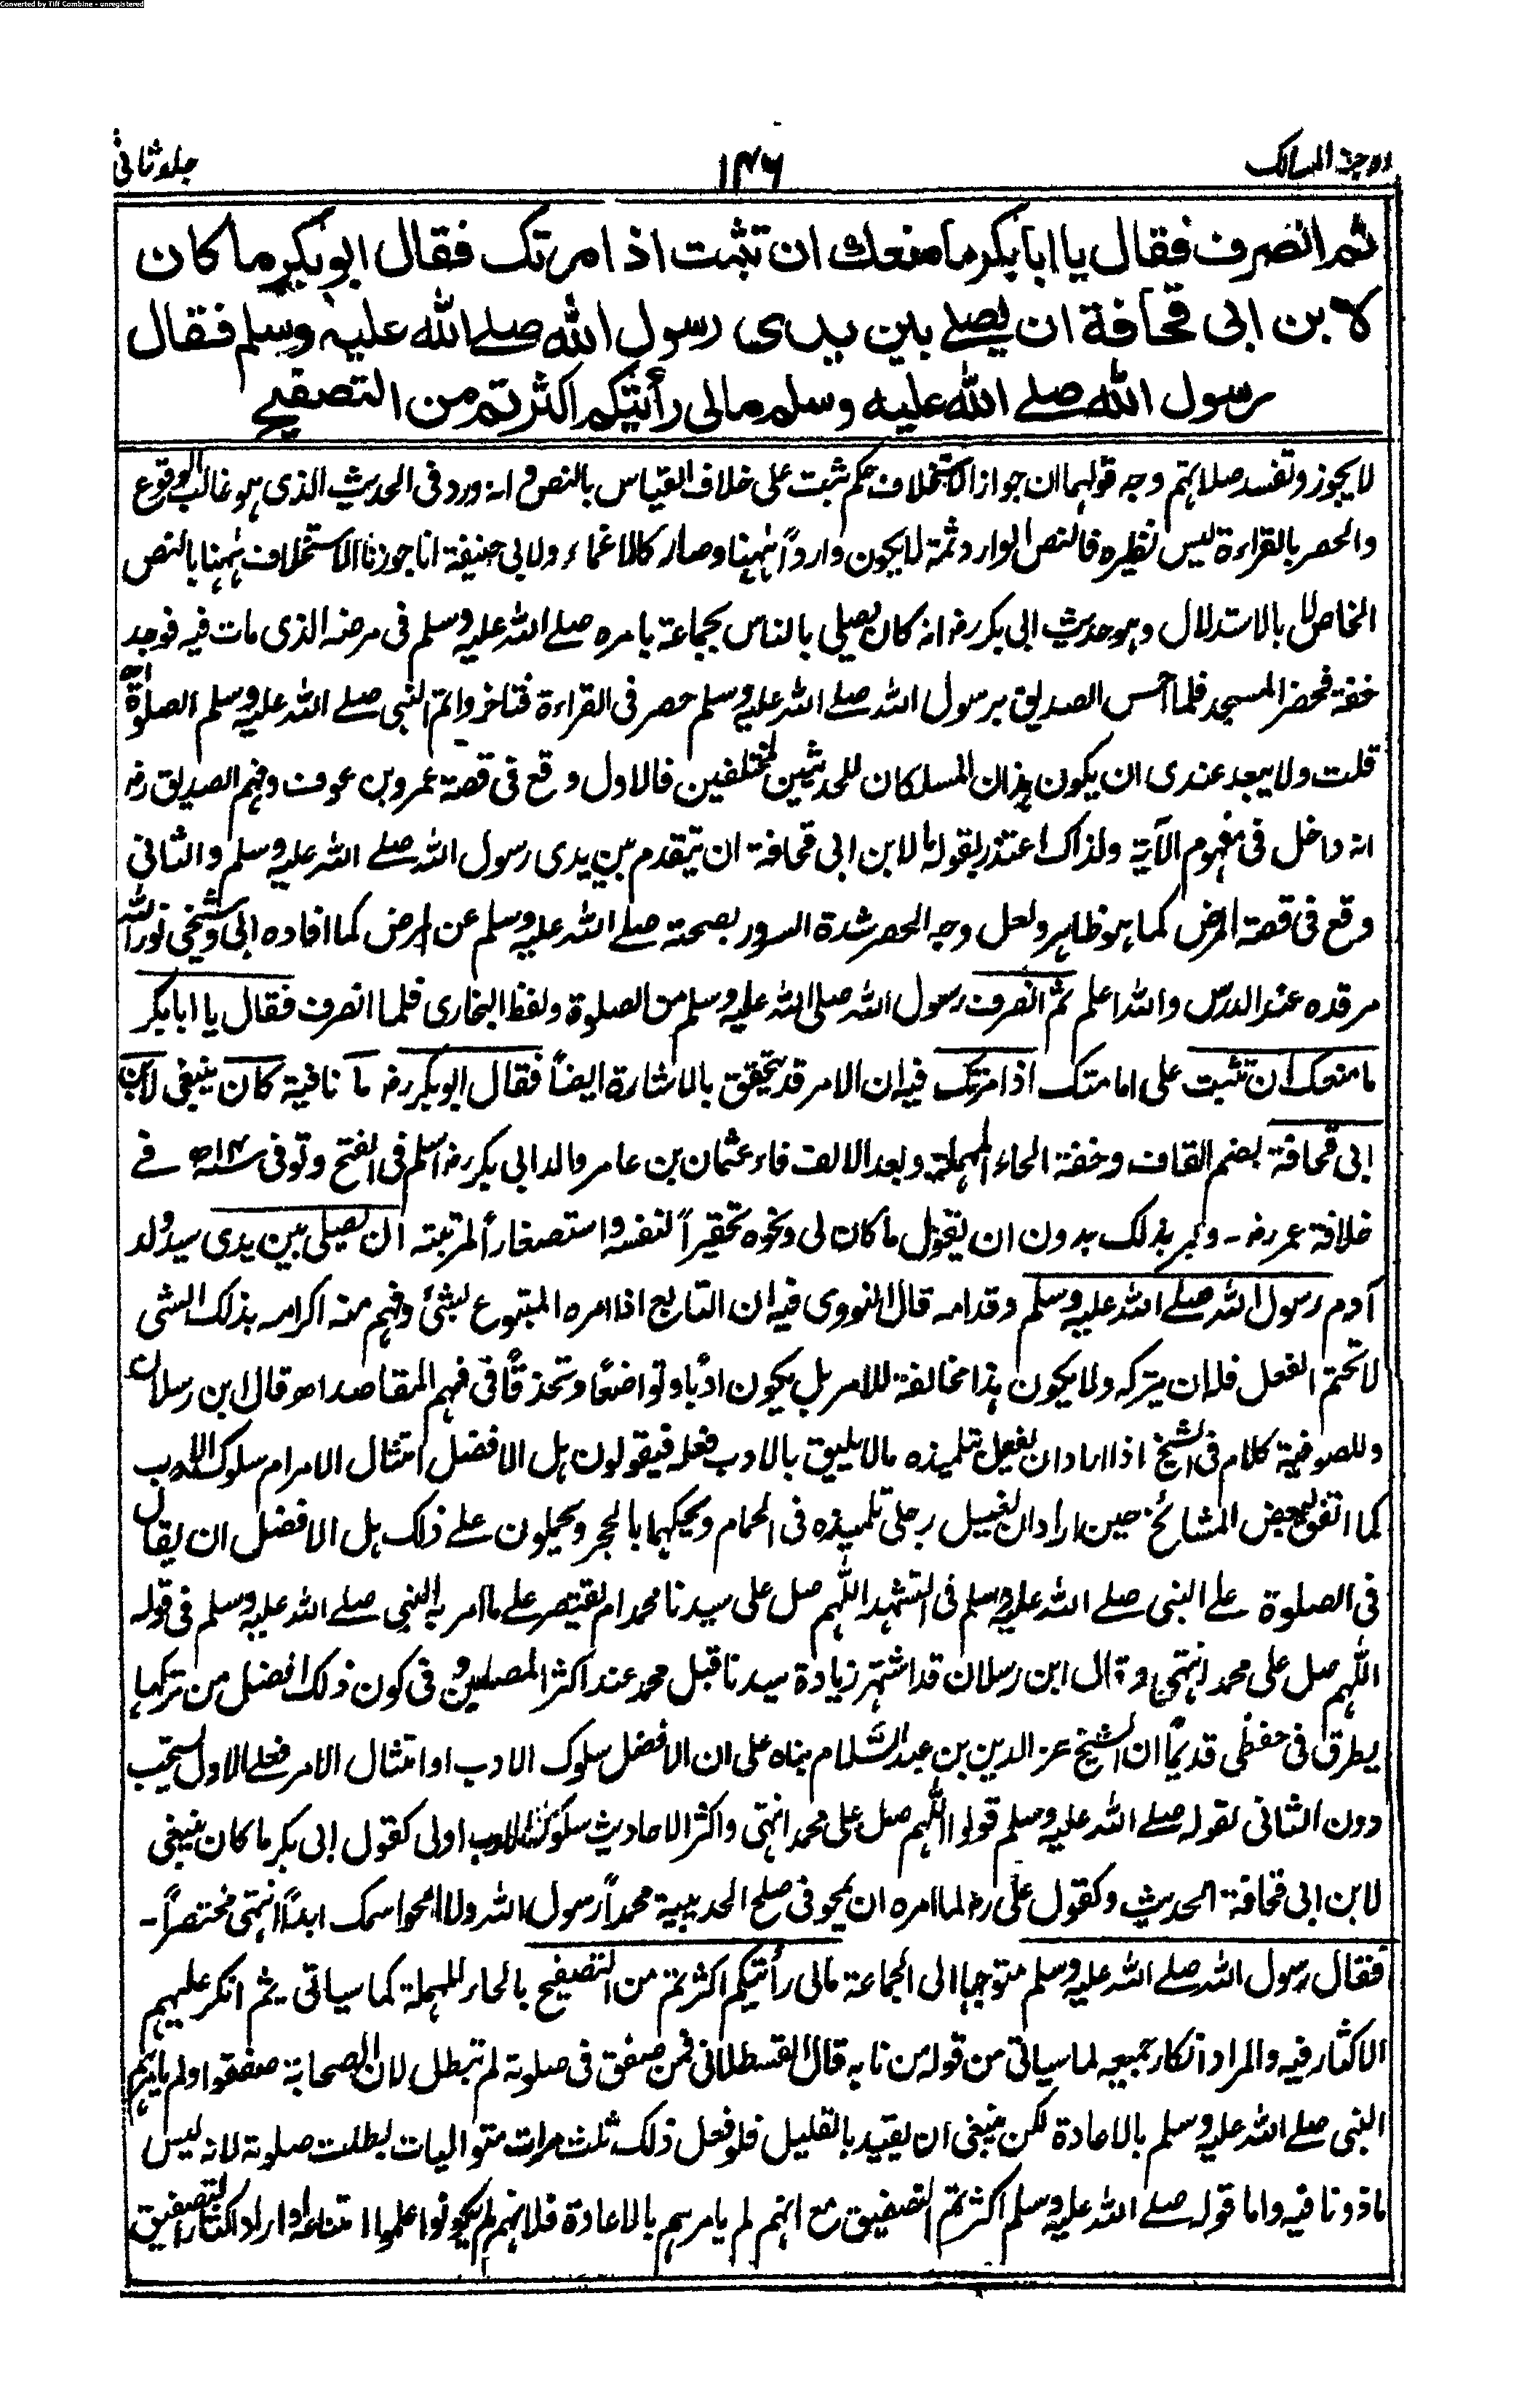 Converted by Tiff Combine - unregistered
اوجز المسالك
۱۴۶
جلد ثانی
ثم انصرف فقال يا ابا بكر ما منعك ان تثبت اذ امرتك فقال ابو بكر ما كان
لابن ابی قحافة ان يصلے بين يدی رسول الله صلے الله عليه وسلم فقال
رسول الله صلے الله عليه وسلم مالی رأيتكم اكثرتم من التصفيح
لا يجوز وتفسد صلاتهم وجه قولهما ان جواز الاستخلاف حكم ثبت علی خلاف القياس بالنص وانه ورد فی الحديث الذی هو غالب الوقوع
والحصر بالقراءة ليس نظيره فالنص الوارد ثمة لا يكون وارداً ههنا وصار كالاغماء ولابی حنيفة انا جوزنا الاستخلاف ههنا بالنص
الخاص لا بالاستدلال وهو حديث ابی بكر رض انه كان يصلی بالناس بجماعة بامره صلے الله عليه وسلم فی مرضه الذی مات فيه فوجد
خفة فحضر المسجد فلما احس الصديق برسول الله صلے الله عليه وسلم حصر فی القراءة فتاخر واتم النبی صلے الله عليه وسلم الصلوٰة اھ
قلت ولا يبعد عندی ان يكون هذان المسلكان للحدثين المختلفين فالاول وقع فی قصة عمرو بن عوف وفهم الصديق رض
انه داخل فی مفهوم الآية ولذاك اعتذر بقوله ما لابن ابی قحافة ان يتقدم بين يدی رسول الله صلے الله عليه وسلم والثانی
وقع فی قصة المرض كما هو ظاهر ولعل وجه الحصر شدة السرور بصحته صلے الله عليه وسلم عن المرض كما افاده ابی وشيخی نور الله
مرقده عند الدرس والله اعلم ثم انصرف رسول الله صلی الله عليه وسلم من الصلوة ولفظ البخاری فلما انصرف فقال يا ابا بكر
ما منعك ان تثبت علی امامتك اذ امرتك فيه ان الامر قد يتحقق بالاشارة ايضاً فقال ابو بكر رض ما نافية كان ينبغی لابن
ابی قحافة بضم القاف وخفة الحاء المهملة وبعد الالف فاء عثمان بن عامر والد ابی بكر رض اسلم فی الفتح وتوفی سنة ۱۴ھ فے
خلافة عمر رض - وعبر بذلك بدون ان يقول ما كان لی ونحوه تحقيراً لنفسه واستصغاراً لمرتبته ان يصلی بين يدی سيد ولد
آدم رسول الله صلے الله عليه وسلم وقدامه قال النووی فيه ان التابع اذا امره المتبوع بشئ وفهم منه اكرامه بذلك الشی
لا تحتم الفعل فله ان يتركه ولا يكون هذا مخالفة للامر بل يكون ادباً وتواضعاً وتحذقاً فی فهم المقاصد اھ وقال ابن رسلان
وللصوفية كلام فی الشيخ اذا اراد ان يفعل تلميذه مالا يليق بالادب فعله فيقولون هل الافضل امتثال الامر ام سلوك الادب
كما اتفق لبعض المشائخ حين اراد ان يغسل رجلی تلميذه فی الحمام ويحكهما بالحجر ويحملون علے ذلك هل الافضل ان يقال
فی الصلوة علے النبی صلے الله عليه وسلم فی التشهد اللهم صل علی سيدنا محمد ام يقتصر علے ما امر به النبی صلے الله عليه وسلم فی قوله
اللهم صل علی محمد انتهی وقال ابن رسلان قد اشتهر زيادة سيدنا قبل محمد عند اكثر المصلين وفی كون ذلك افضل من تركها
يطرق فی حفظی قديماً ان الشيخ عز الدين بن عبد السلام بناه علی ان الافضل سلوك الادب او امتثال الامر فعلے الاول يستحب
دون الثانی لقوله صلے الله عليه وسلم قولوا اللهم صل علی محمد انتهی واكثر الاحاديث سلوك الادب اولی كقول ابی بكر ما كان ينبغی
لابن ابی قحافة الحديث وكقول علی رض لما امره ان يمحو فی صلح الحديبية محمداً رسول الله ولا امحو اسمك ابداً انتهی مختصراً -
فقال رسول الله صلے الله عليه وسلم متوجها الی الجماعة مالی رأيتكم اكثرتم من التصفيح بالحاء المهملة كما سياتی ثم انكر عليهم
الاكثار فيه والمراد انكار جميعه لما سياتی من قوله من نابه قال القسطلانی فمن صفق فی صلوته لم تبطل لان الصحابة صفقوا ولم يامرهم
النبی صلے الله عليه وسلم بالاعادة لكن ينبغی ان يقيد بالقليل فلو فعل ذلك ثلث مرات متواليات بطلت صلوته لانه ليس
ماذونا فيه واما قوله صلے الله عليه وسلم اكثرتم التصفيق مع انهم لم يامرهم بالاعادة فلانهم لم يكونوا علموا امتناعه او اراد اكثار التصفيق